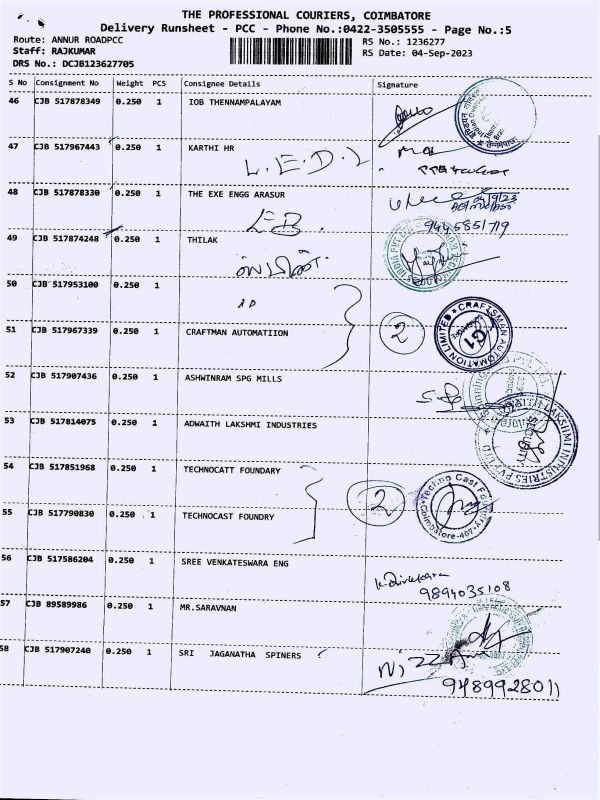 THE PROFESSIONAL COURIERS, COIMBATORE
Delivery Runsheet - PCC - Phone No.:0422-3505555 - Page No.:5
Route: ANNUR ROADPCC RS No.: 1236277
Staff: RAJKUMAR RS Date: 04-Sep-2023
DRS No.: DCJB123627705
S No Consignment No Weight PCS Consignee Details Signature
46 CJB 517878349 0.250 1 IOB THENNAMPALAYAM
47 CJB 517967443 0.250 1 KARTHI HR
L.E.D.
48 CJB 517878330 0.250 1 THE EXE ENGG ARASUR
EB. 9445851719
49 CJB 517874248 0.250 1 THILAK
50 CJB 517953100 0.250 1
2
51 CJB 517967339 0.250 1 CRAFTMAN AUTOMATIION
CRAFTSMAN AUTOMATION LIMITED
G1
52 CJB 517907436 0.250 1 ASHWINRAM SPG MILLS
53 CJB 517814075 0.250 1 ADWAITH LAKSHMI INDUSTRIES
ADWAITH LAKSHMI INDUSTRIES PVT LTD
54 CJB 517851968 0.250 1 TECHNOCATT FOUNDARY
2
Techno Cast Foundry
Coimbatore-407
55 CJB 517790830 0.250 1 TECHNOCAST FOUNDRY
56 CJB 517586204 0.250 1 SREE VENKATESWARA ENG
9894035108
57 CJB 89589986 0.250 1 MR.SARAVNAN
58 CJB 517907240 0.250 1 SRI JAGANATHA SPINERS
9489928011